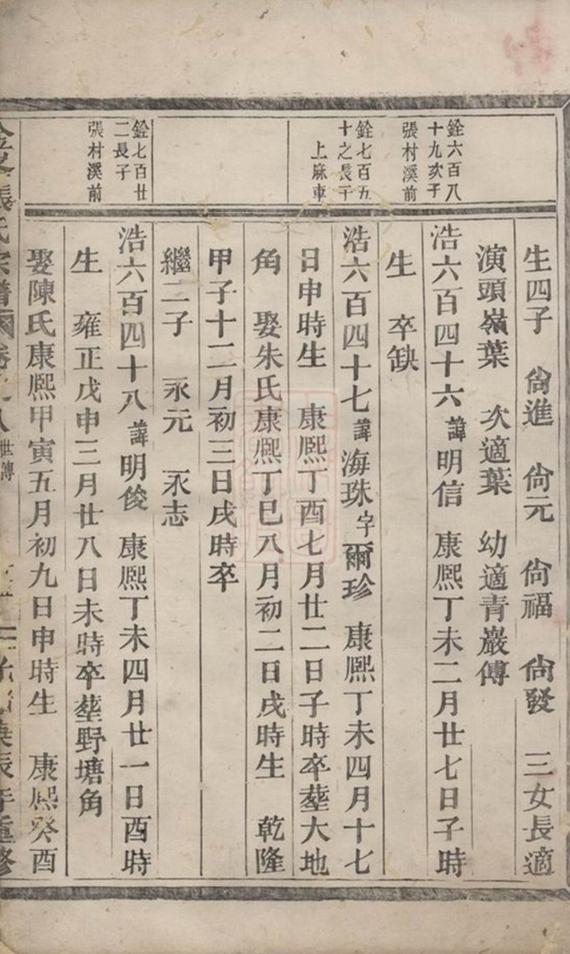 銓六百八
十九次子
張村溪前
銓七百五
十之長子
上麻車
銓七百廿
二長子
張村溪前
生四子 尙進 尙元 尙福 尙發 三女長適
演頭嶺葉 次適葉 幼適靑巖傅
浩六百四十六諱明信 康熈丁未二月廿七日子時
生 卒缺
浩六百四十七諱海珠字爾珍 康熈丁未四月十七
日申時生 康熈丁酉七月廿二日子時卒塟大地
角 娶朱氏康熈丁巳八月初二日戌時生 乾隆
甲子十二月初三日戌時卒
繼二子 永元 永志
浩六百四十八諱明俊 康熈丁未四月廿一日酉時
生 雍正戊申三月廿八日未時卒塟野塘角
娶陳氏康熈甲寅五月初九日申時生 康熈癸酉
張氏宗譜 卷 世傳 庚辰年重修